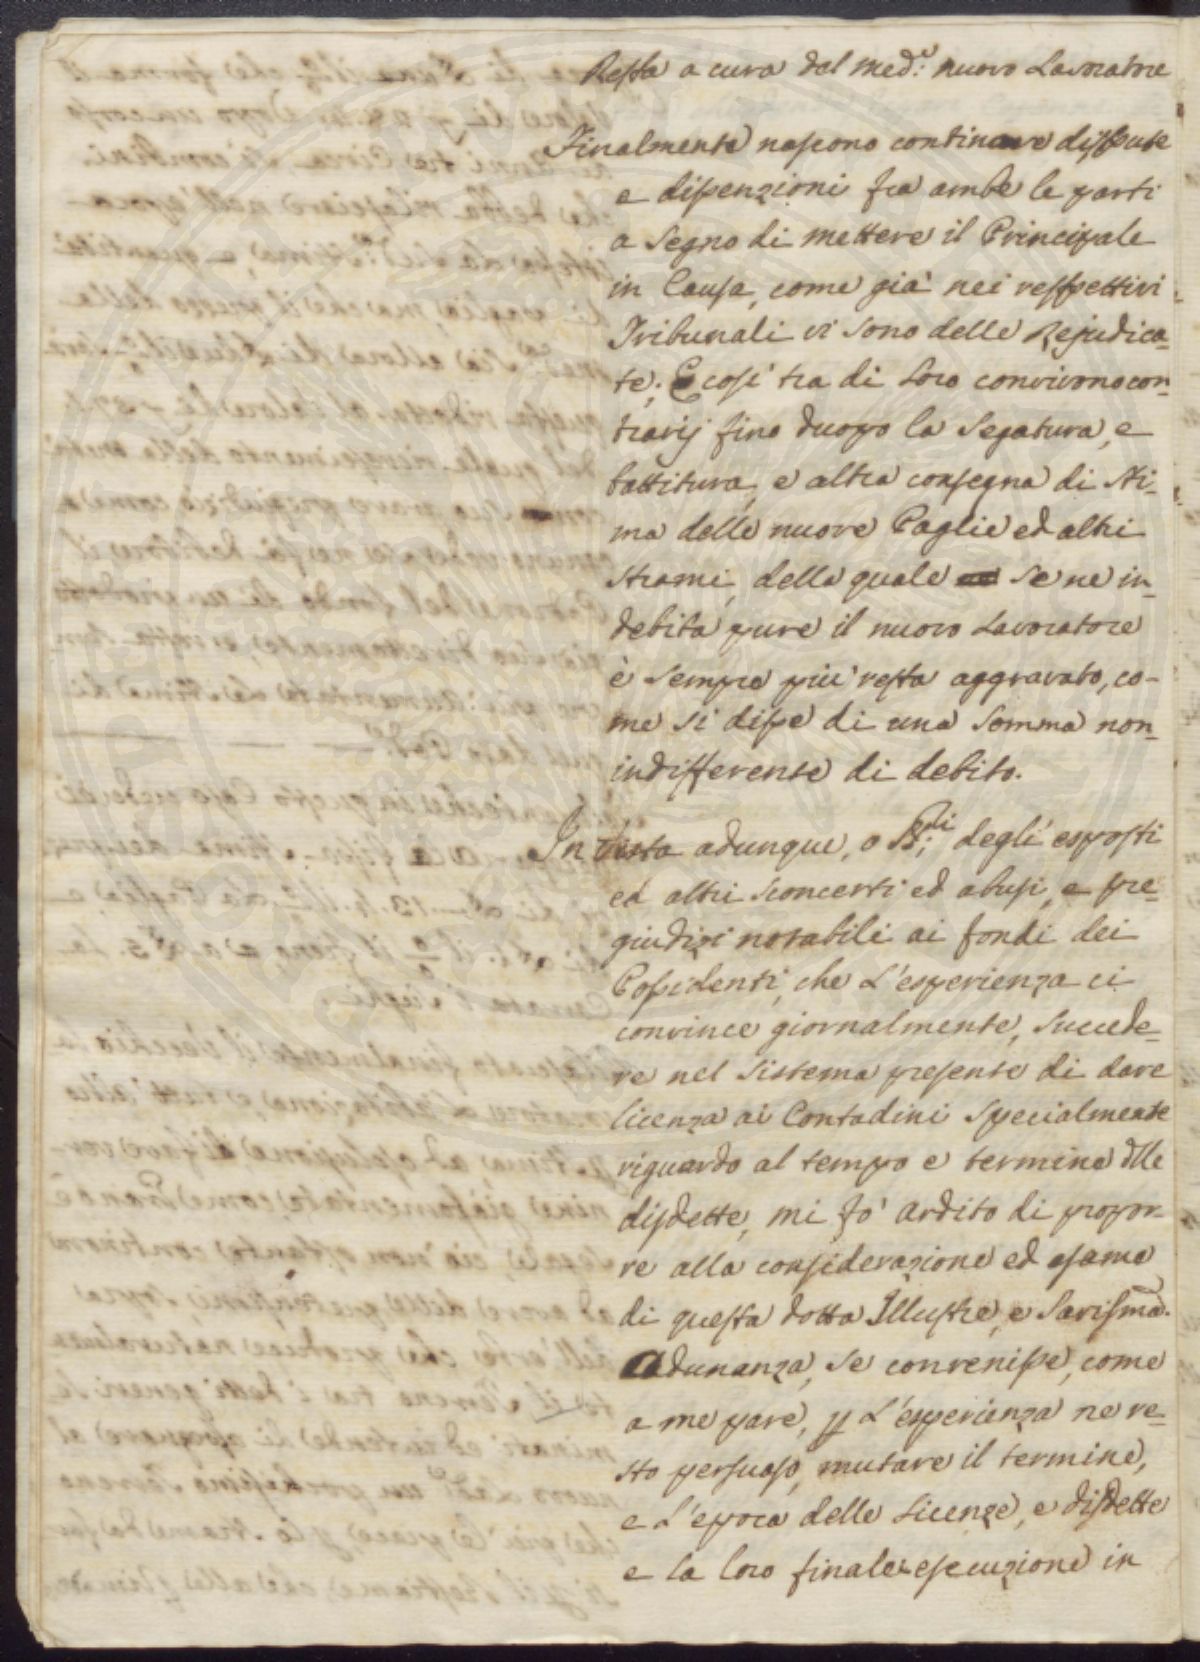 Resta a cura del med.e nuovo Lavoratore
Finalmente nascono continove dispute
e dissenzioni fra ambe le parti
a segno di mettere il Principale
in Causa, come già nei respettivi
Tribunali vi sono delle Rejudica-
te; E così tra di loro convivono con-
trarij fino duopo la Segatura, e
battitura, e altra consegna di Sti-
ma delle nuove Paglie ed altri
strami, della quale se ne in-
debita pure il nuovo Lavoratore
è sempre più resta aggravato, co-
me si disse di una somma non-
indifferente di debito.
In vista adunque, o degli esposti
ed altri sconcerti ed abusi, e pre-
giudizi notabili ai fondi dei
Possidenti, che L'esperienza ci
convince giornalmente, succede-
re nel sistema presente di dare
licenza ai Contadini specialmente
riguardo al tempo e termine dlle
disdette, mi fo' ardito di propor-
re alla considerazione ed esame
di questa dotta Illustre, e Savissma.
Adunanza, se convenisse, come
a me pare, p L'esperienza ne re-
sto persuaso, mutare il termine,
e L'epoca delle Licenze, e disdette
e la loro finale esecuzione in